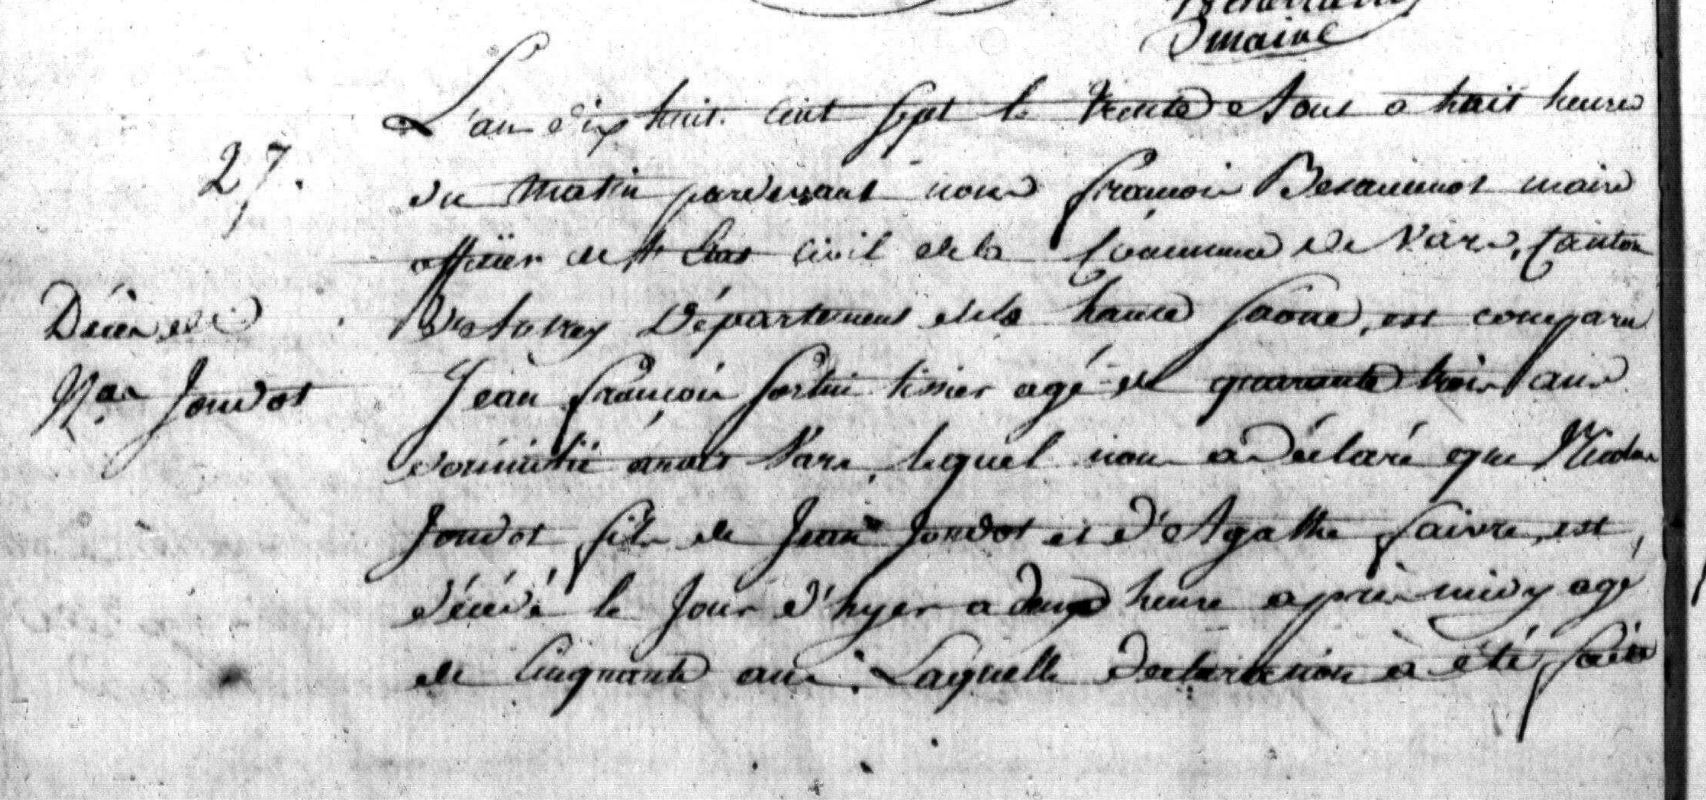 D maire
L'an dix huit cent sept le trente Aout a huit heure
27.
du matin pardevant nous françois maire
officier de l'Etat Civil de la Commune de Vars, Canton
Décès de
D'Autrey Département de la haute Saone, est comparu
Nas Jouvot
Jean françois fortin tissier agé de quarante trois ans
domicilié audit Vars, lequel nous a Déclaré que Nicolas
Jouvot fils de Jean Jouvot et d'Agathe faivre, est
décédé le Jour d'hyer a deux heure après midy agé
de Cinquante ans. Laquelle declaration a été faite